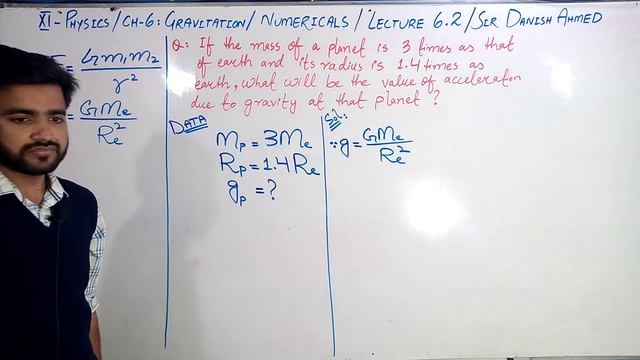 XI-PHYSICS/CH-6: GRAVITATION/NUMERICALS/LECTURE 6.2/SIR DANISH AHMED
= Gm₁m₂/r²
= GMe/Re²
Q: If the mass of a planet is 3 times as that
of earth and its radius is 1.4 times as
earth, what will be the value of acceleration
due to gravity at that planet?
DATA
Mp = 3Me
Rp = 1.4 Re
gp = ?
Sol:
∵ g = GMe/Re²